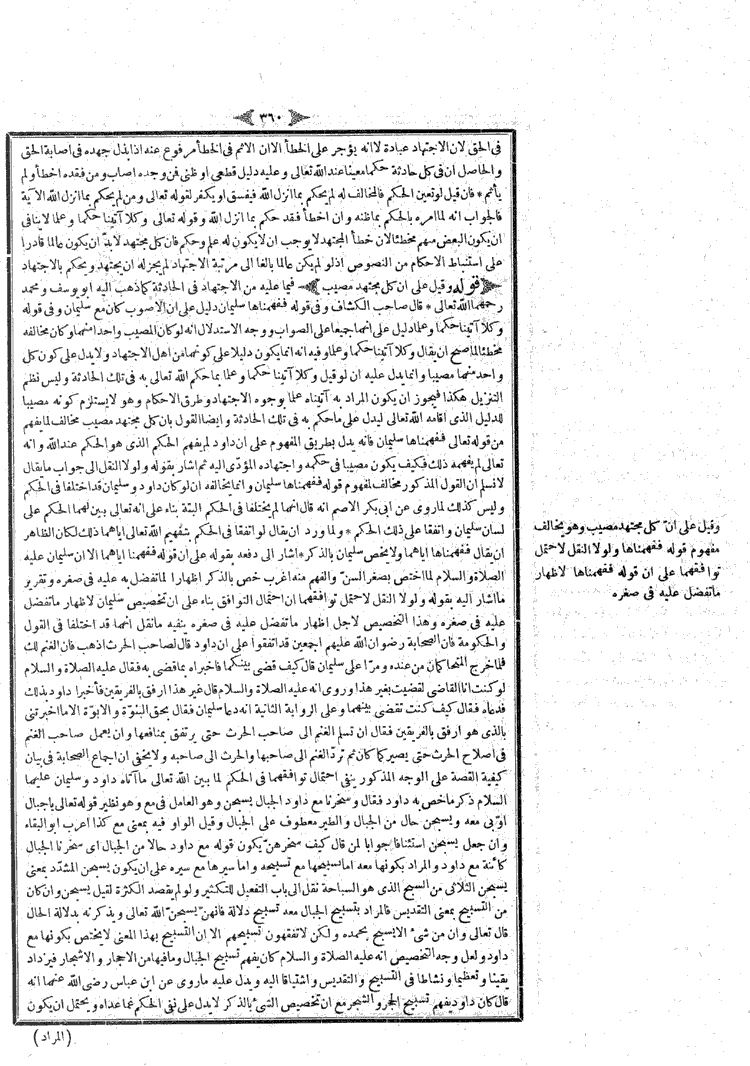 ٣٦٠
فى الحق لان الاجتهاد عبادة لا انه يؤجر على الخطأ الا ان الاثم فى الخطأ مرفوع عنه اذا بذل جهده فى اصابة الحق
والحاصل ان فى كل حادثة حكما معينا عند الله تعالى وعليه دليل قطعى او ظنى فن وجده اصاب ومن فقده اخطأ ولم
يأثم * فان قيل لو تعين الحكم فالمخالف له لم يحكم بما انزل الله فيفسق او يكفر لقوله تعالى ومن لم يحكم بما انزل الله الآية
فالجواب انه لما امره بالحكم بما ظنه وان اخطأ فقد حكم بما انزل الله وقوله تعالى وكلا آتينا حكما وعلما لا ينافى
ان يكون البعض منهم مخطئا لان خطأ المجتهد لا يوجب ان لا يكون له علم وحكم فان كل مجتهد لا بد ان يكون عالما قادرا
على استنباط الاحكام من النصوص اذ لو لم يكن عالما بالغا الى مرتبة الاجتهاد لم يجز له ان يجتهد ويحكم بالاجتهاد
قوله وقيل على ان كل مجتهد مصيب فيما عليه من الاجتهاد فى الحادثة كما ذهب اليه ابو يوسف ومحمد
رحمهما الله تعالى * قال صاحب الكشاف وفى قوله ففهمناها سليمان دليل على ان الاصوب كان مع سليمان وفى قوله
وكلا آتينا حكما وعلما دليل على انهما جميعا على الصواب ووجه الاستدلال انه لو كان المصيب واحدا منهما وكان مخالفه
مخطئا لما صح ان يقال وكلا آتينا حكما وعلما وفيه انه انما يكون دليلا على كونهما من اهل الاجتهاد ولا يدل على كون كل
واحد منهما مصيبا وانما يدل عليه ان لو قيل وكلا آتينا حكما وعلما بما حكم الله تعالى به فى تلك الحادثة وليس نظم
التنزيل هكذا فيجوز ان يكون المراد به آتيناه علما بوجوه الاجتهاد وطرق الاحكام وهو لا يستلزم كونه مصيبا
للدليل الذى اقامه الله تعالى ليدل على ما حكم به فى تلك الحادثة وايضا القول بان كل مجتهد مصيب مخالف لما يفهم
من قوله تعالى ففهمناها سليمان فانه يدل بطريق المفهوم على ان داود لم يفهم الحكم الذى هو الحكم عند الله وانه
تعالى لم يفهمه ذلك فكيف يكون مصيبا فى حكمه واجتهاده المؤدّى اليه ثم اشار بقوله ولولا النقل الى جواب ما يقال
لا نسلم ان القول المذكور مخالف لمفهوم قوله ففهمناها سليمان وانما يخالفه ان لو كان داود وسليمان قد اختلفا فى الحكم
وليس كذلك لما روى عن ابى بكر الاصم انه قال انهما لم يختلفا فى الحكم البتة بناء على انه تعالى بين لهما الحكم على
لسان سليمان واتفقا على ذلك الحكم * ولما ورد ان يقال لو اتفقا فى الحكم بتفهيم الله تعالى اياهما ذلك لكان الظاهر
ان يقال ففهمناها اياهما ولا يخص سليمان بالذكر * اشار الى دفعه بقوله على ان قوله ففهمنا اياهما الا ان سليمان عليه
الصلاة والسلام لما اختص بصغر السنّ والفهم منه اغرب خص بالذكر اظهارا لما تفضل به عليه فى صغره وتقرير
ما اشار اليه بقوله ولولا النقل لاحتمل توافقهما ان احتمال التوافق بناء على ان تخصيص سليمان لاظهار ما تفضل
عليه فى صغره وهذا التخصيص لاجل اظهار ما تفضل عليه فى صغره ينفيه ما نقل انهما قد اختلفا فى القول
والحكومة فان الصحابة رضوان الله عليهم اجمعين قد اتفقوا على ان داود قال لصاحب الحرث اذهب فان الغنم لك
فلما خرج المتحاكمان من عنده ومرّا على سليمان قال كيف قضى بينكما فاخبراه بما قضى به فقال عليه الصلاة والسلام
لو كنت انا القاضى لقضيت بغير هذا وروى انه عليه الصلاة والسلام قال غير هذا ارفق بالفريقين فأخبرا داود بذلك
فدعاه فقال كيف كنت تقضى بينهما وعلى الرواية الثانية انه دعا سليمان فقال بحق البنوّة والابوّة الا ما اخبرتنى
بالذى هو ارفق بالفريقين فقال ان تسلم الغنم الى صاحب الحرث حتى يرتفق بمنافعها وان يعمل صاحب الغنم
فى اصلاح الحرث حتى يصير كما كان ثم تردّ الغنم الى صاحبها والحرث الى صاحبه ولا يخفى ان اجماع الصحابة فى بيان
كيفية القصة على الوجه المذكور ينفى احتمال توافقهما فى الحكم لما بين الله تعالى ما آتاه داود وسليمان عليهما
السلام ذكر ما خص به داود فقال وسخرنا مع داود الجبال يسبحن وهو العامل فى مع وهو نظير قوله تعالى يا جبال
اوّبى معه ويسبحن حال من الجبال والطير معطوف على الجبال وقيل الواو فيه بمعنى مع كذا اعرب ابو البقاء
وان جعل يسبحن استئنافا جوابا لمن قال كيف سخرهنّ يكون قوله مع داود حالا من الجبال اى سخرنا الجبال
كائنة مع داود والمراد بكونها معه اما تسبيحها مع تسبيحه واما سيرها مع سيره على ان يكون يسبحن المشدّد بمعنى
يسبحن الثلاثى من السبح الذى هو السباحة نقل الى باب التفعيل للتكثير ولو لم يقصد الكثرة لقيل يسبحن وان كان
من التسبيح بمعنى التقديس فالمراد بتسبيح الجبال معه تسبيح دلالة فانهنّ يسبحنّ الله تعالى ويذكرنه بدلالة الحال
قال تعالى وان من شئ الا يسبح بحمده ولكن لا تفقهون تسبيحهم الا ان التسبيح بهذا المعنى لا يختص بكونها مع
داود ولعل وجه التخصيص انه عليه الصلاة والسلام كان يفهم تسبيح الجبال وما فيها من الاحجار والاشجار فيزداد
يقينا وتعظيما ونشاطا فى التسبيح والتقديس واشتياقا اليه ويدل عليه ما روى عن ابن عباس رضى الله عنهما انه
قال كان داود يفهم تسبيح الحجر والشجر مع ان تخصيص الشئ بالذكر لا يدل على نفى الحكم عما عداه ويحتمل ان يكون
(المراد)
وقيل على انّ كل مجتهد مصيب وهو يخالف
مفهوم قوله ففهمناها ولولا النقل لاحتمل
توافقهما على ان قوله ففهمناها لاظهار
ما تفضل عليه فى صغره